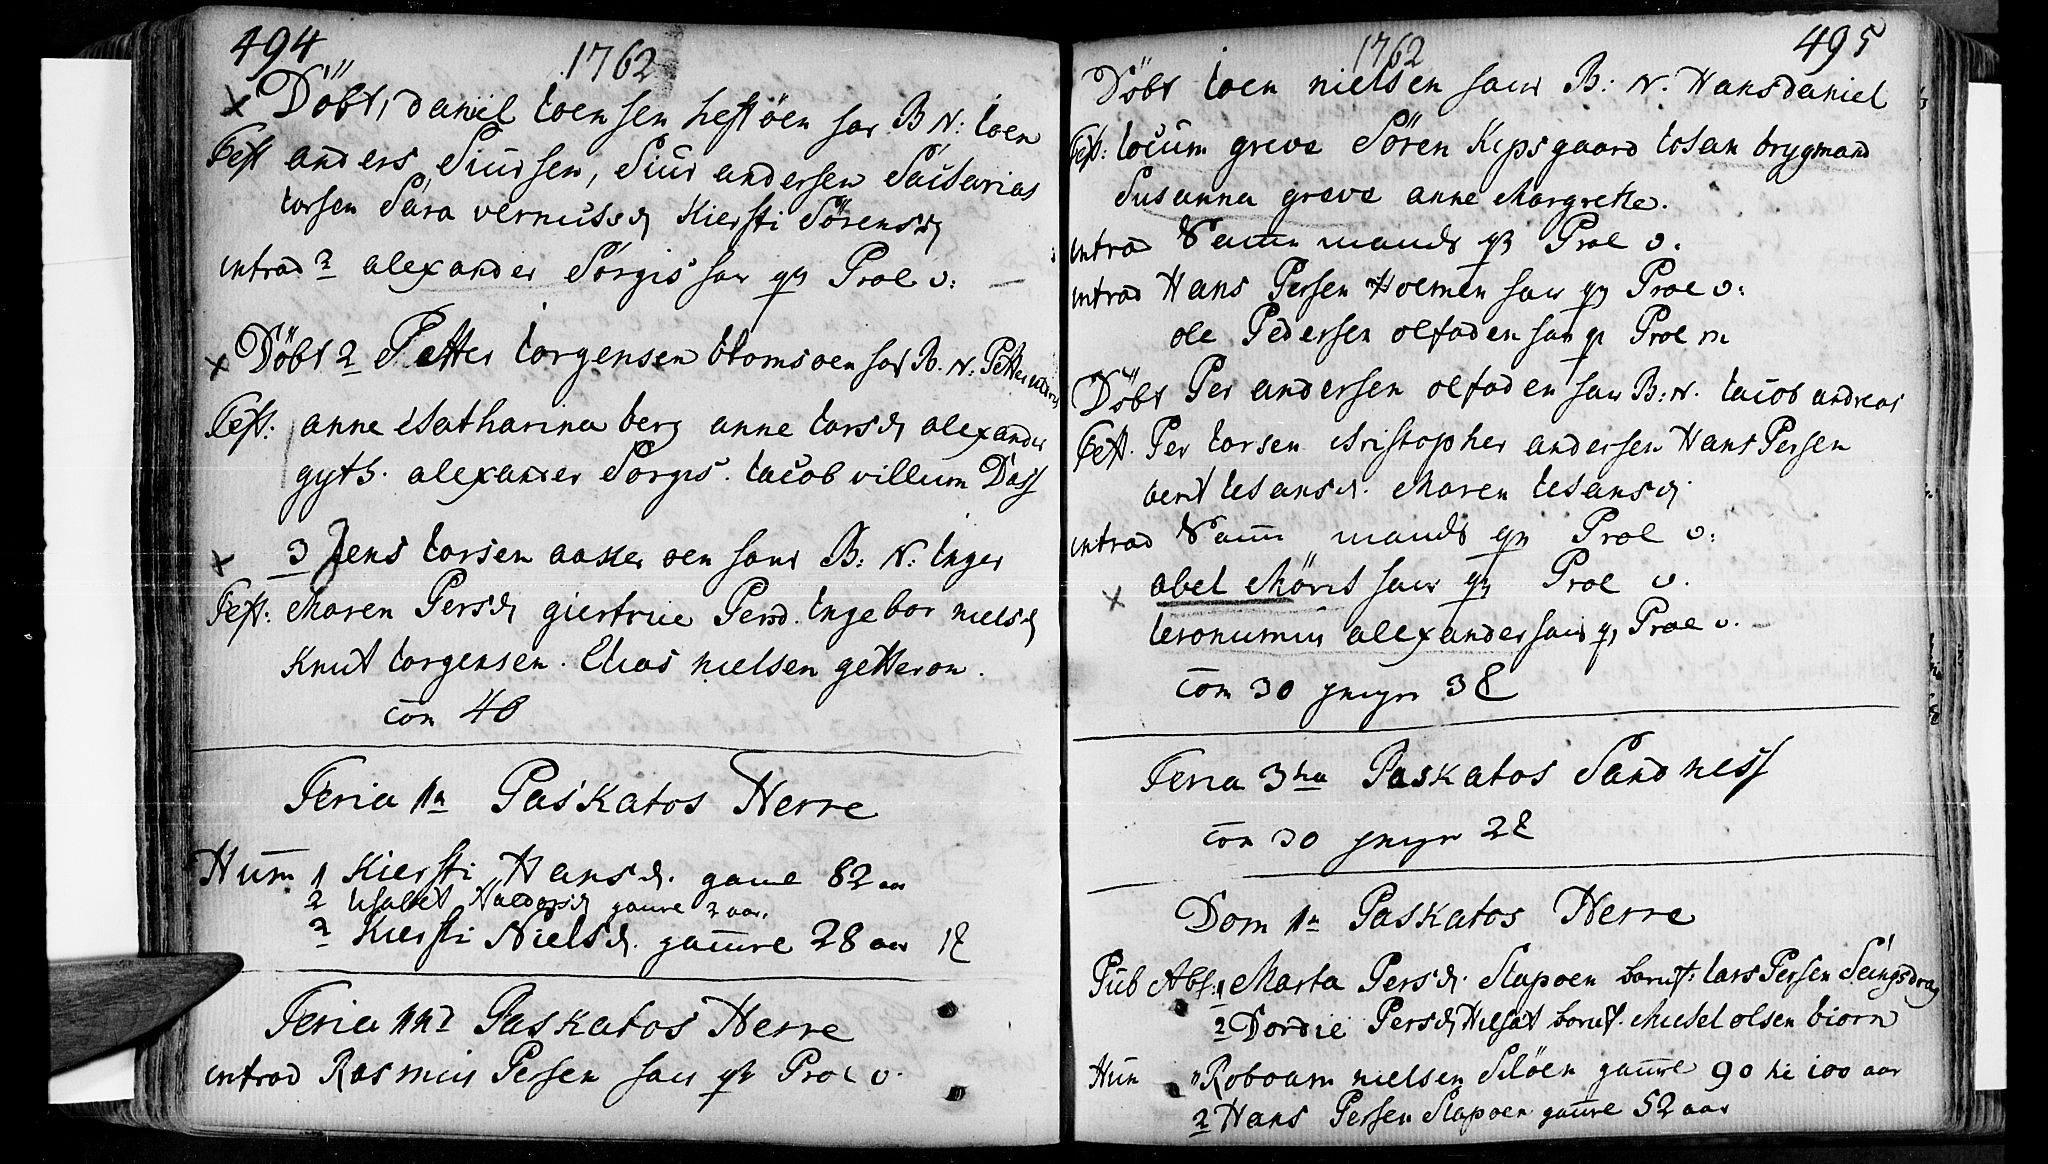 494
1762
Döbt 1 Daniel Joensen hestöen sar B: N: Joen
Test anders Siursen, Siur andersen Sacharias
Larsen Sara vernusd Kiersti Sörensd
introd 2 alexander Sörgis sar qv Prol v:
Döbt 2 Petter Jörgensen blomsöen sar B. N: Petter andreas
Test: anne Catharina berg anne Larsd alexander
gyth. alexander Sorgis. Jacob villum Dass
3 Jens Larsen aaker öen sar B: N: Inger
Test: Maren Persd giertrue Persd. Ingebor nielsd
Knut Jörgensen. Elias nielsen getterön.
com 40
Feria 1a Paskatos Herre
Hum 1 Kiersti Hansd. game 82 aar
2 Haldorsd gamre 2 aar.
3 Kiersti Nielsd. gamre 28 aar
Feria 2 Paskatos Herre
introd Rasmus Persen sar qv Prol v.
1762
495
Döbt Joen nielsen sar B: N. Hans daniel
Test: Jocum greve Sören Kipsgaard Johan brygmand
Susanna greve anne Margrette.
introd Samm mands qv Prol v.
introd Hans Persen Holmen sar qv Prol v:
ole Pedersen olfaden sar qv Prol m
Döbt Per andersen olfaden sar B: N. Jacob andreas
Test. Per Larsen Christopher andersen Hans Persen
berit Johansd. Maren Johansd.
introd Samm mands qv Prol v:
abel Möris sar qv Prol v.
Jeronimus alexander sar qv Prol v.
com 30
Feria 3tia Paskatos Sandness
com 30
Dom 1a Paskatos Herre
Pub Abs: 1 Marta Persd. Slapöen Lars Persen
2 Dordie Persd Michel olsen biorn
Hum 1 Roboam nielsen gamre 90 til 100 aar
2 Hans Persen Slapöen gamre 52 aar